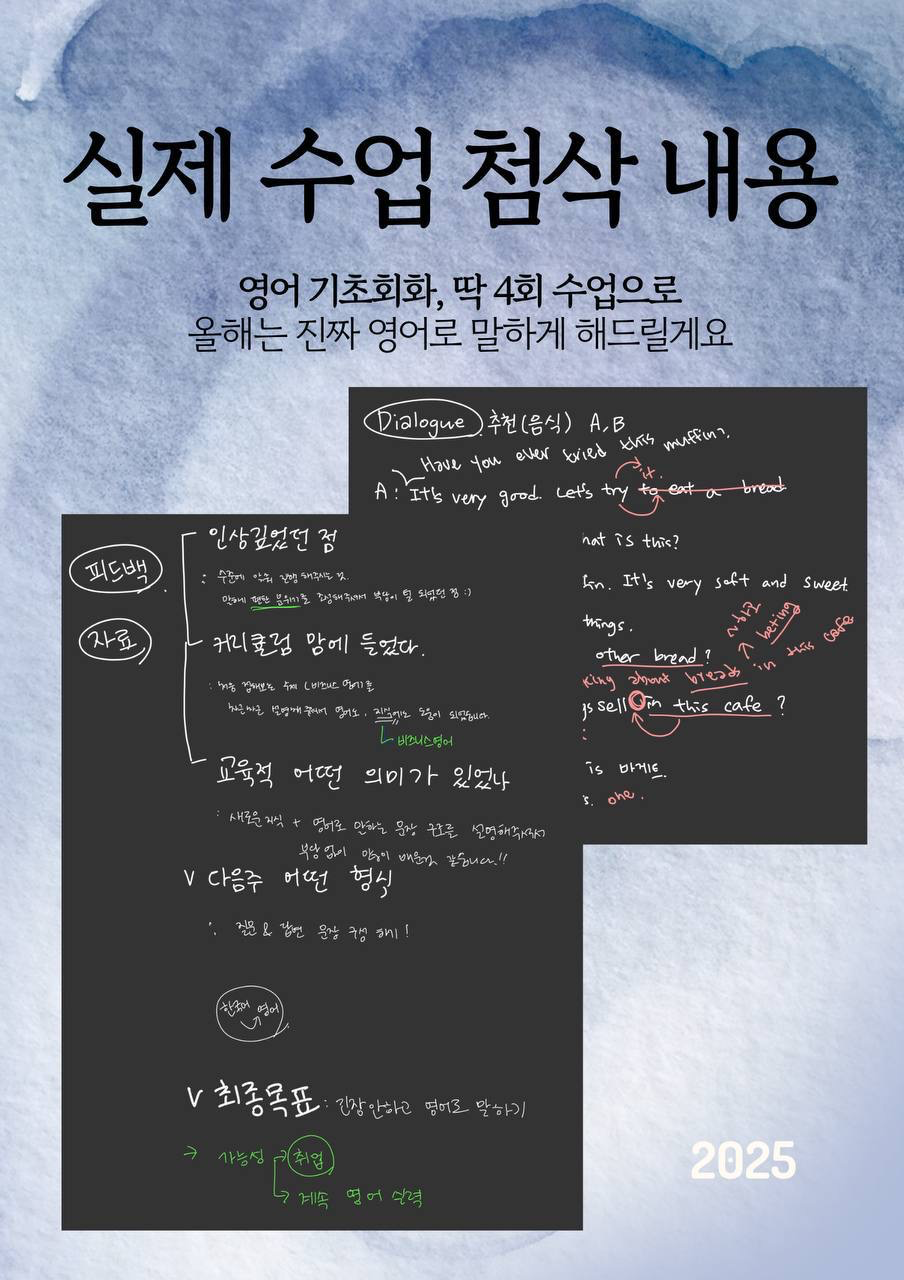 실제 수업 첨삭 내용
영어 기초회화, 딱 4회 수업으로
올해는 진짜 영어로 말하게 해드릴게요
Dialogue 추천(음식) A, B
Have you ever tried this muffin?
it.
A: It's very good. Let's try to eat a bread
hat is this?
in. It's very soft and sweet.
things.
other bread?
king about breads in this cafe
gs sell in this cafe?
is 바게트.
s. one.
피드백
자료
인상깊었던 점
: 수준에 맞춰 진행해주시는 것.
편한 분위기를 조성해주셔서 부담이 덜 되었던 점 :)
커리큘럼 맘에 들었다.
: 처음 접해보는 주제 (비즈니스 영어)를
차근차근 설명해주셔서 영어도, 지식에도 도움이 되었습니다.
비즈니스영어
교육적 어떤 의미가 있었나
: 새로운 지식 + 영어로 말하는 문장 구조를 설명해주셔서
부담없이 많이 배운것 같습니다!!
V 다음주 어떤 형식
: 질문 & 답변 문장 구성 하기!
한국어 영어
V 최종목표 : 긴장안하고 영어로 말하기
→ 가능성 → 취업
→ 계속 영어 실력
2025